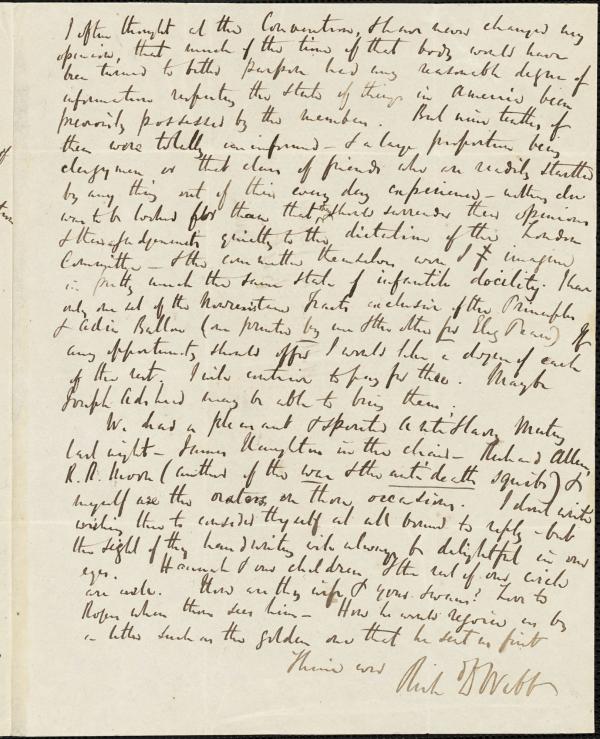 I often thought at the Convention, & have never changed my
opinion, that much of the time of that body would have
been turned to better purpose had any reasonable degree of
information respecting the state of things in America been
previously possessed by the members. But nine tenths of
them were totally uninformed - & a large proportion being
clergymen or that class of friends who are readily startled
by any thing out of their every day experience - nothing else
was to be looked for than that they should surrender their opinions
& their judgements quietly to the dictation of the London
Committee - & the committee themselves were I imagine
in pretty much the same state of infantile docility. I have
only one set of the Nonresistance Tracts exclusive of the Principles of
& Adin Ballou (one printed by me & the other for Eliz Pease) If
any opportunity should offer I would like a dozen of each
of the rest. I will contrive to pay for them. Maybe
Joseph Adshead may be able to bring them.
We had a pleasant & spirited Anti Slavery Meeting
last night - James Haughton in the chair - Richard Allen,
R. R. Moore (author of the war & the anti death squibs) &
myself are the orators on those occasions. I dont write
wishing thee to consider thyself at all bound to reply - but
the sight of thy handwriting will always be delightful in our
eyes. Hannah & our children & the rest of our circle
are well. How are thy wife & your swans? Love to
Rogers when thou sees him - How he would rejoice us by
a letter such as the golden one that he sent us first
Thine ever
Rich D Webb